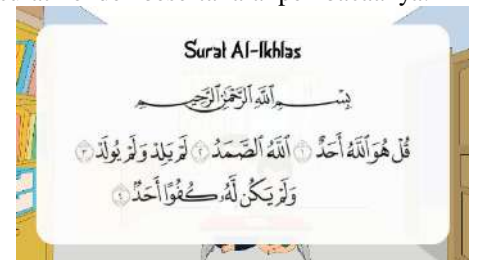 Surat Al-Ikhlas
بِسْمِ اللَّهِ الرَّحْمَٰنِ الرَّحِيمِ
قُلْ هُوَ ٱللَّهُ أَحَدٌ ١ ٱللَّهُ ٱلصَّمَدُ ٢ لَمْ يَلِدْ وَلَمْ يُولَدْ ٣
وَلَمْ يَكُن لَّهُۥ كُفُوًا أَحَدٌۢ ٤